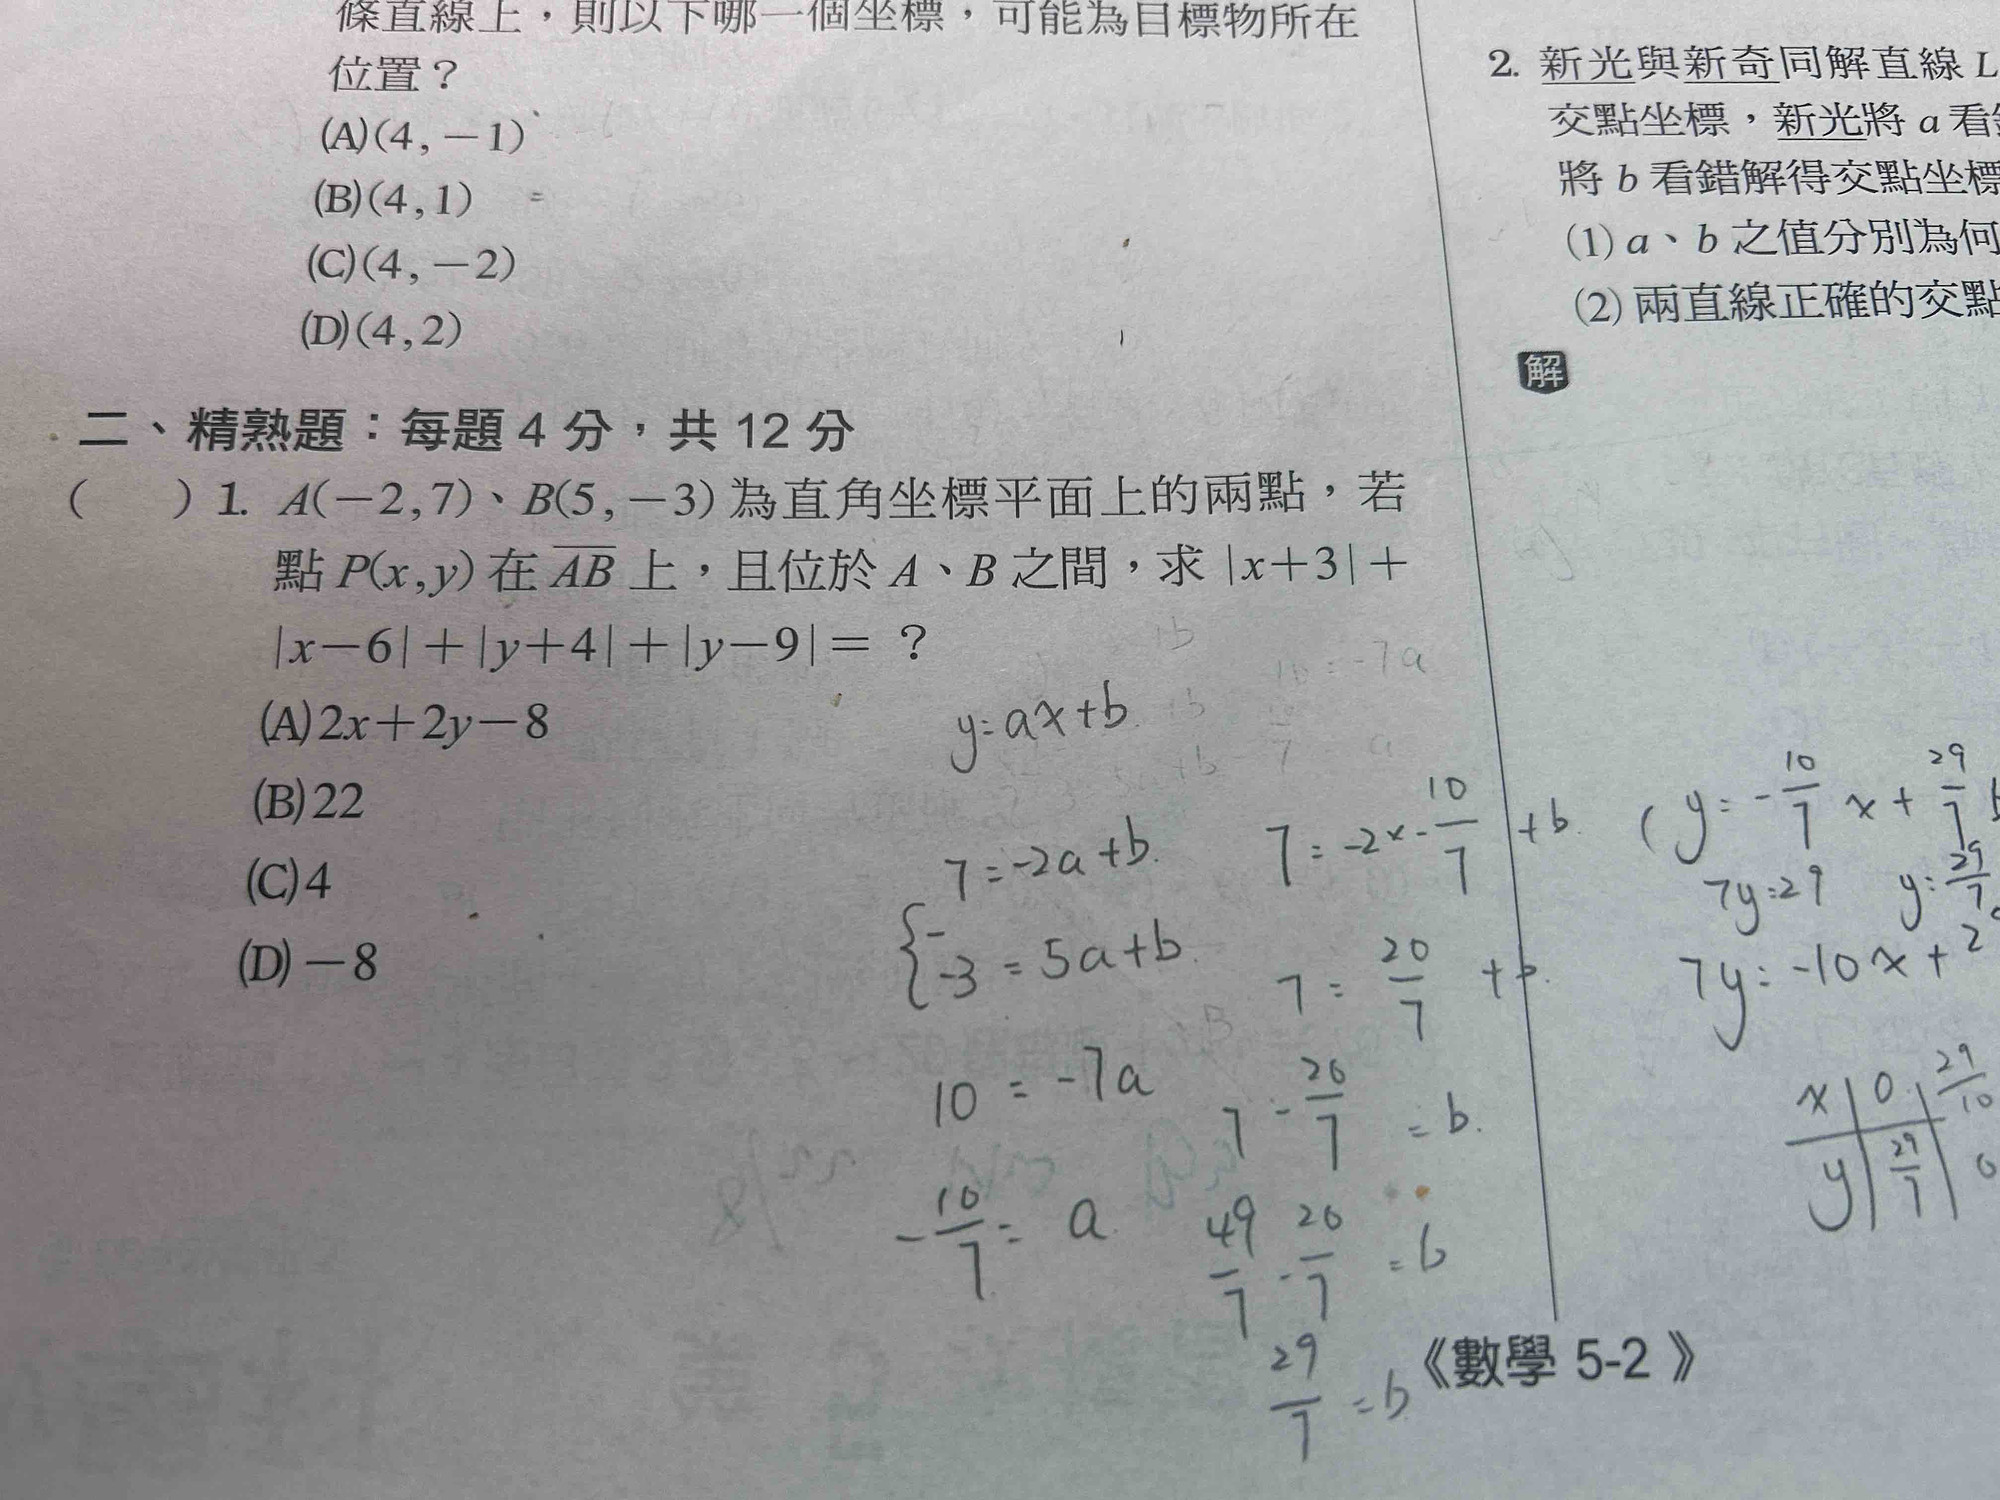 條直線上,則以下哪一個坐標,可能為目標物所在
位置?
(A)(4,-1)
(B)(4,1)
(C)(4,-2)
(D)(4,2)
二、精熟題:每題 4 分,共 12 分
(  ) 1. A(-2,7)、B(5,-3) 為直角坐標平面上的兩點,若
點 P(x,y) 在 AB 上,且位於 A、B 之間,求 |x+3|+
|x-6|+|y+4|+|y-9|= ?
(A)2x+2y-8
(B)22
(C)4
(D)-8
y=ax+b
7=-2a+b
-3=5a+b
10=-7a
-10/7=a
7=-2x-10/7+b
7=20/7+b
7-20/7=b
49/7-20/7=b
29/7=b
《數學 5-2》
2. 新光與新奇同解直線 L
交點坐標,新光將 a 看
將 b 看錯解得交點坐標
(1) a、b 之值分別為何
(2) 兩直線正確的交點
解
(y=-10/7 x+29/7
7y=29 y=29/7
7y=-10x+2
x 0 29/10
y 29/7 0